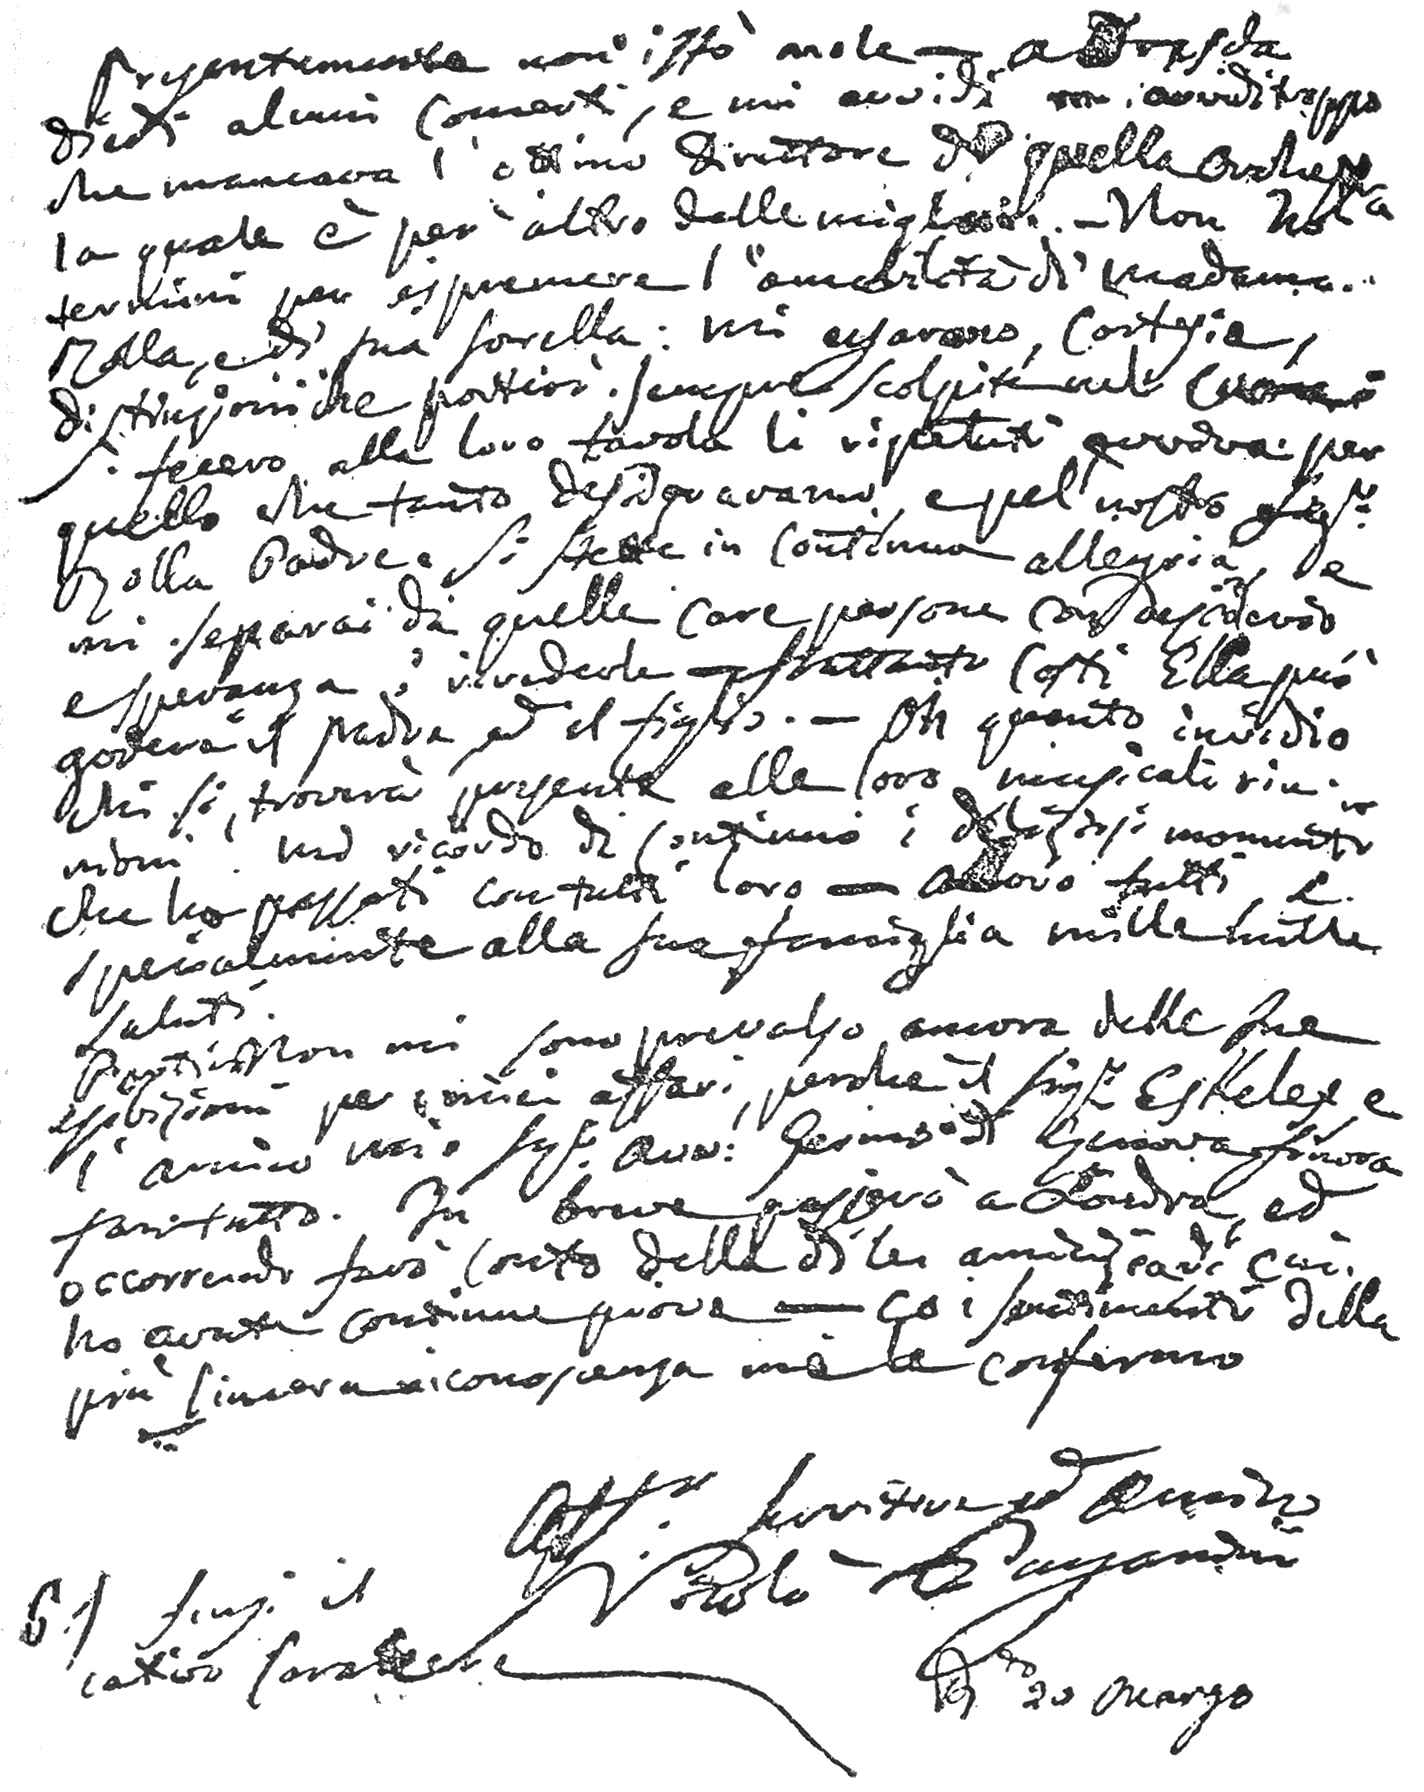 Presentemente non istò male — a Dresda
diedi alcuni Concerti, e mi avvidi troppo
che mancava l'ottimo Direttore di quella Orchestra
la quale è per altro delle migliori. — Non ho
termini per esprimere l'amabilità di Madama
Rolla, e di sua sorella: mi usarono, Cortesie,
distinzioni che porterò sempre scolpite nel Cuore.
Si fecero alla loro tavola li ripetuti evviva per
quello che tanto desideravamo, e pel nostro Sigr.
Rolla Padre. Si stette in Continua allegria, e
mi separai da quelle care persone con desiderio
e speranza di rivederle — frattanto Costì Ella può
godere il padre ed il figlio. — Oh quanto invidio
chi si troverà presente alle loro musicali riu-
nioni! Mi ricordo di Continuo i deliziosi momenti
che ho passati con tutti loro — a loro tutti, e
specialmente alla sua famiglia mille mille
saluti.
Non mi sono prevalso ancora delle sue
esibizioni per i miei affari, perchè il Sigr. Eskeles, e
l'amico mio Sigr. Avv: Germi di Genova finora
fan tutto. In breve passerò a Londra, ed
occorrendo farò Conto della di lei amicizia di cui
ho avute continue prove — Co i sentimenti della
più sincera riconoscenza me le confermo
Aff. Servitore ed Amico
Nicolò Paganini
P.S. scusi il
cattivo Carattere
20 Marzo